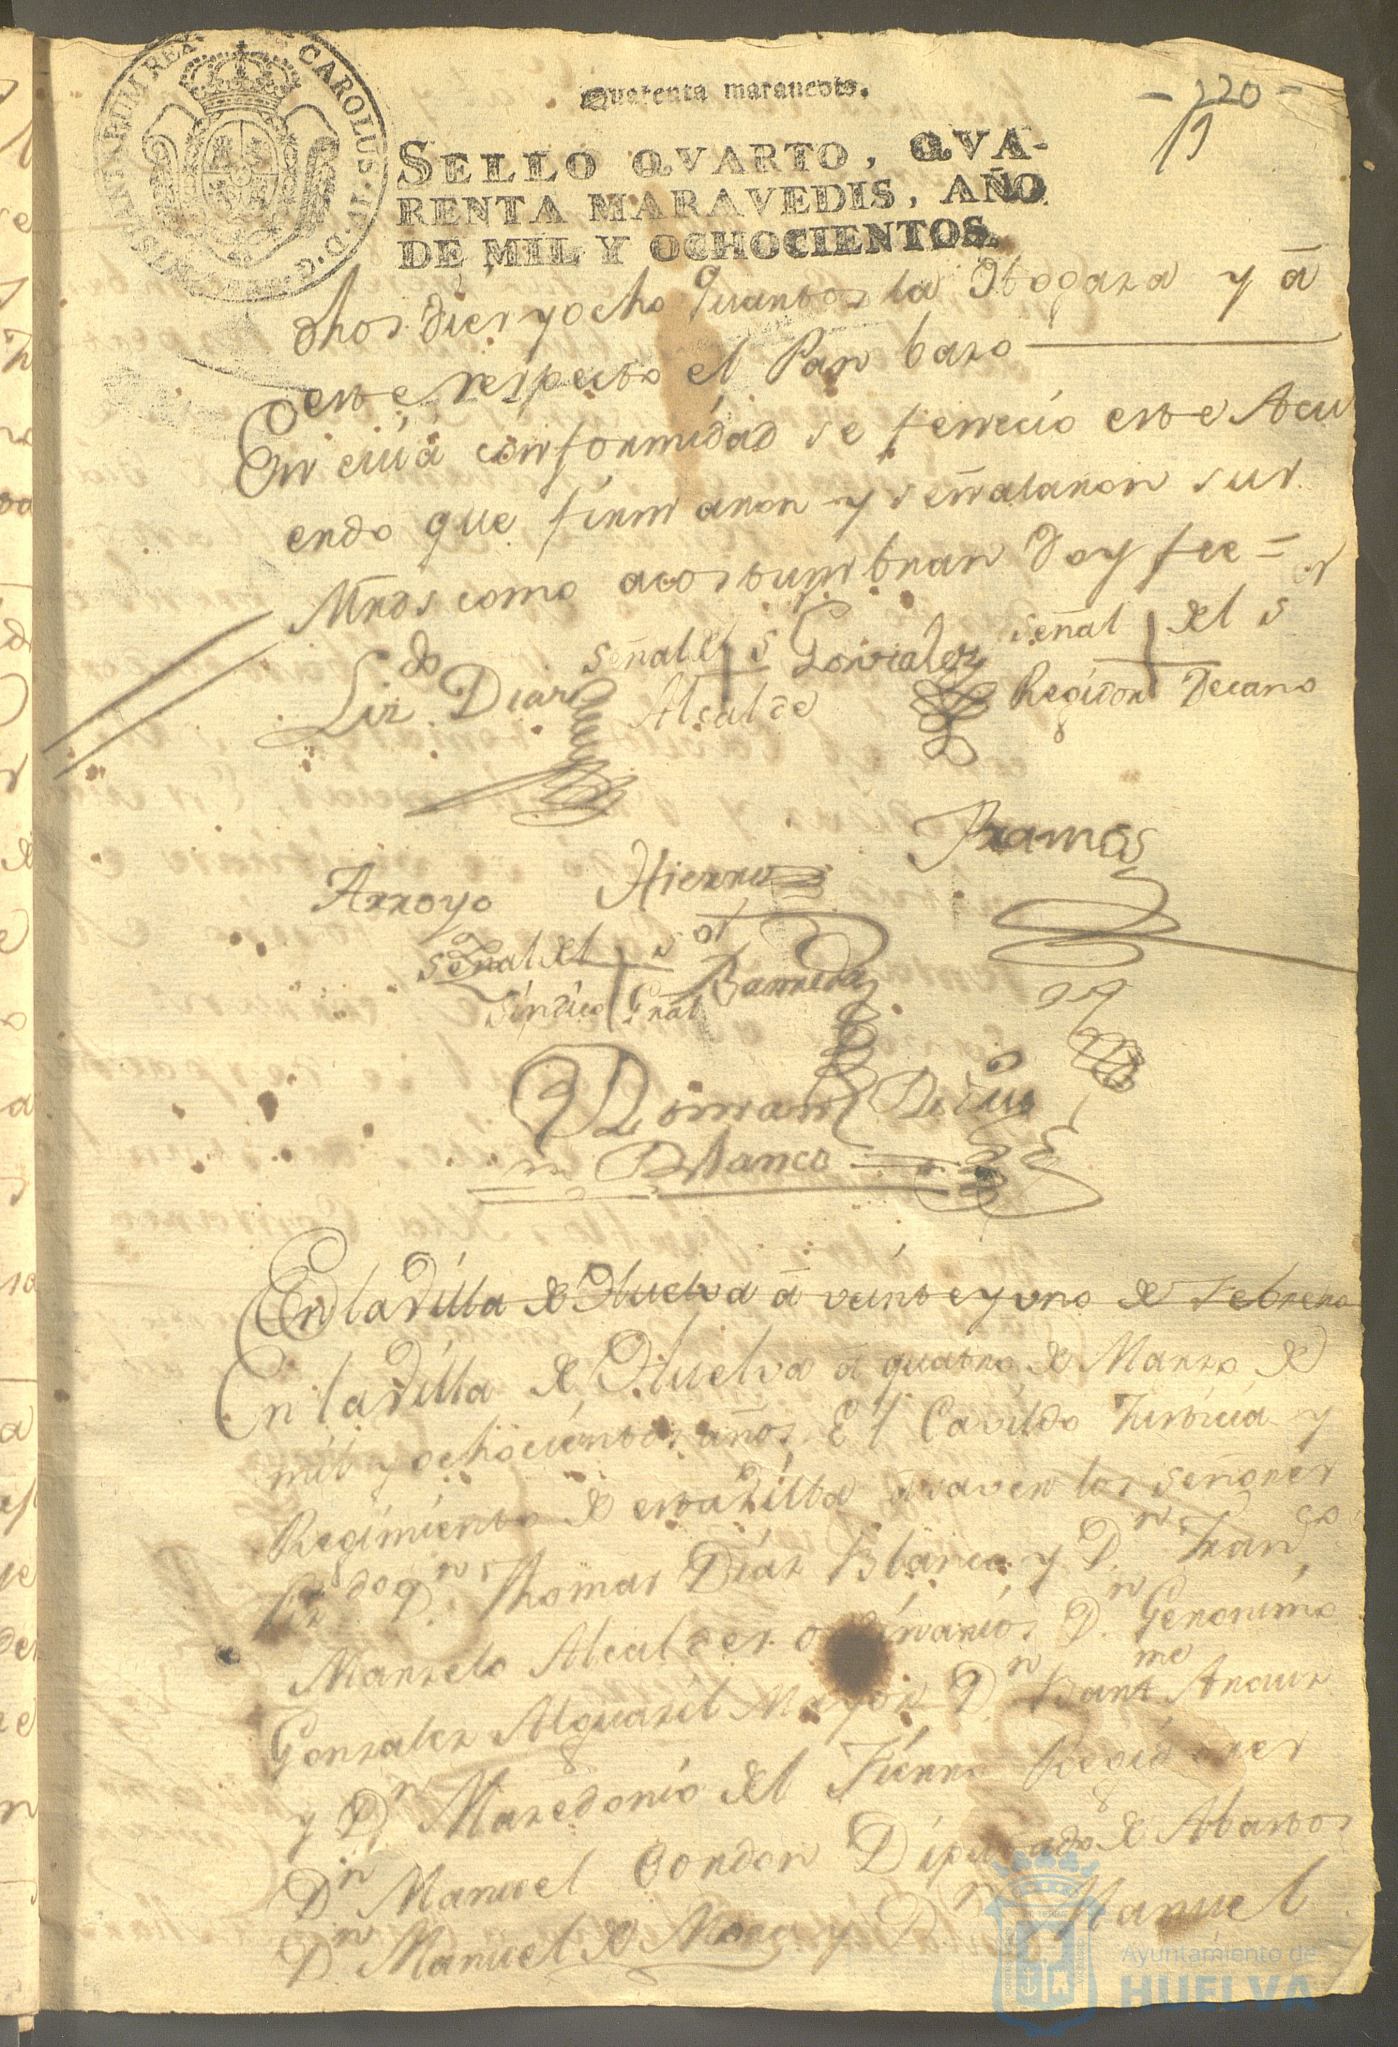 CAROLUS IV D G HISPANIARUM REX
Quarenta maravedis.
-220-
SELLO QVARTO, QVA-
RENTA MARAVEDIS, AÑO
DE MIL Y OCHOCIENTOS.
dhos diez y ocho quartos la Hogaza y á
este respecto el Pan bazo
En cuiá conformidad se feneció este Acu
erdo que firmaron y señalaron sus
Mrds como acostumbran doy fee =
Lizdo Diaz señal del sr Gonzalez señal del sr
Alcalde Regidor Decano
Ramos
Arroyo Hierro
señal del sor Barreda
síndico Gral
Blanco
En la Villa de Huelva á veinte y uno de Febrero
En la Villa de Huelva á quatro de Marzo de
mil y ochocientos años El Cavildo Justicia y
Regimiento de esta Villa á saver los señores
Lizdo Dn Thomas Díaz Blanco y Dn Franco
Marzelo Alcaldes ordinarios Dn Geronimo
Gonzalez Alguazil Mayor Dn Bartme
y Dn Mazedonio del Fierro Regidores
Dn Manuel Condon Diputado de Abastos
Dn Manuel de Mora y Dn Manuel
Ayuntamiento de
HUELVA